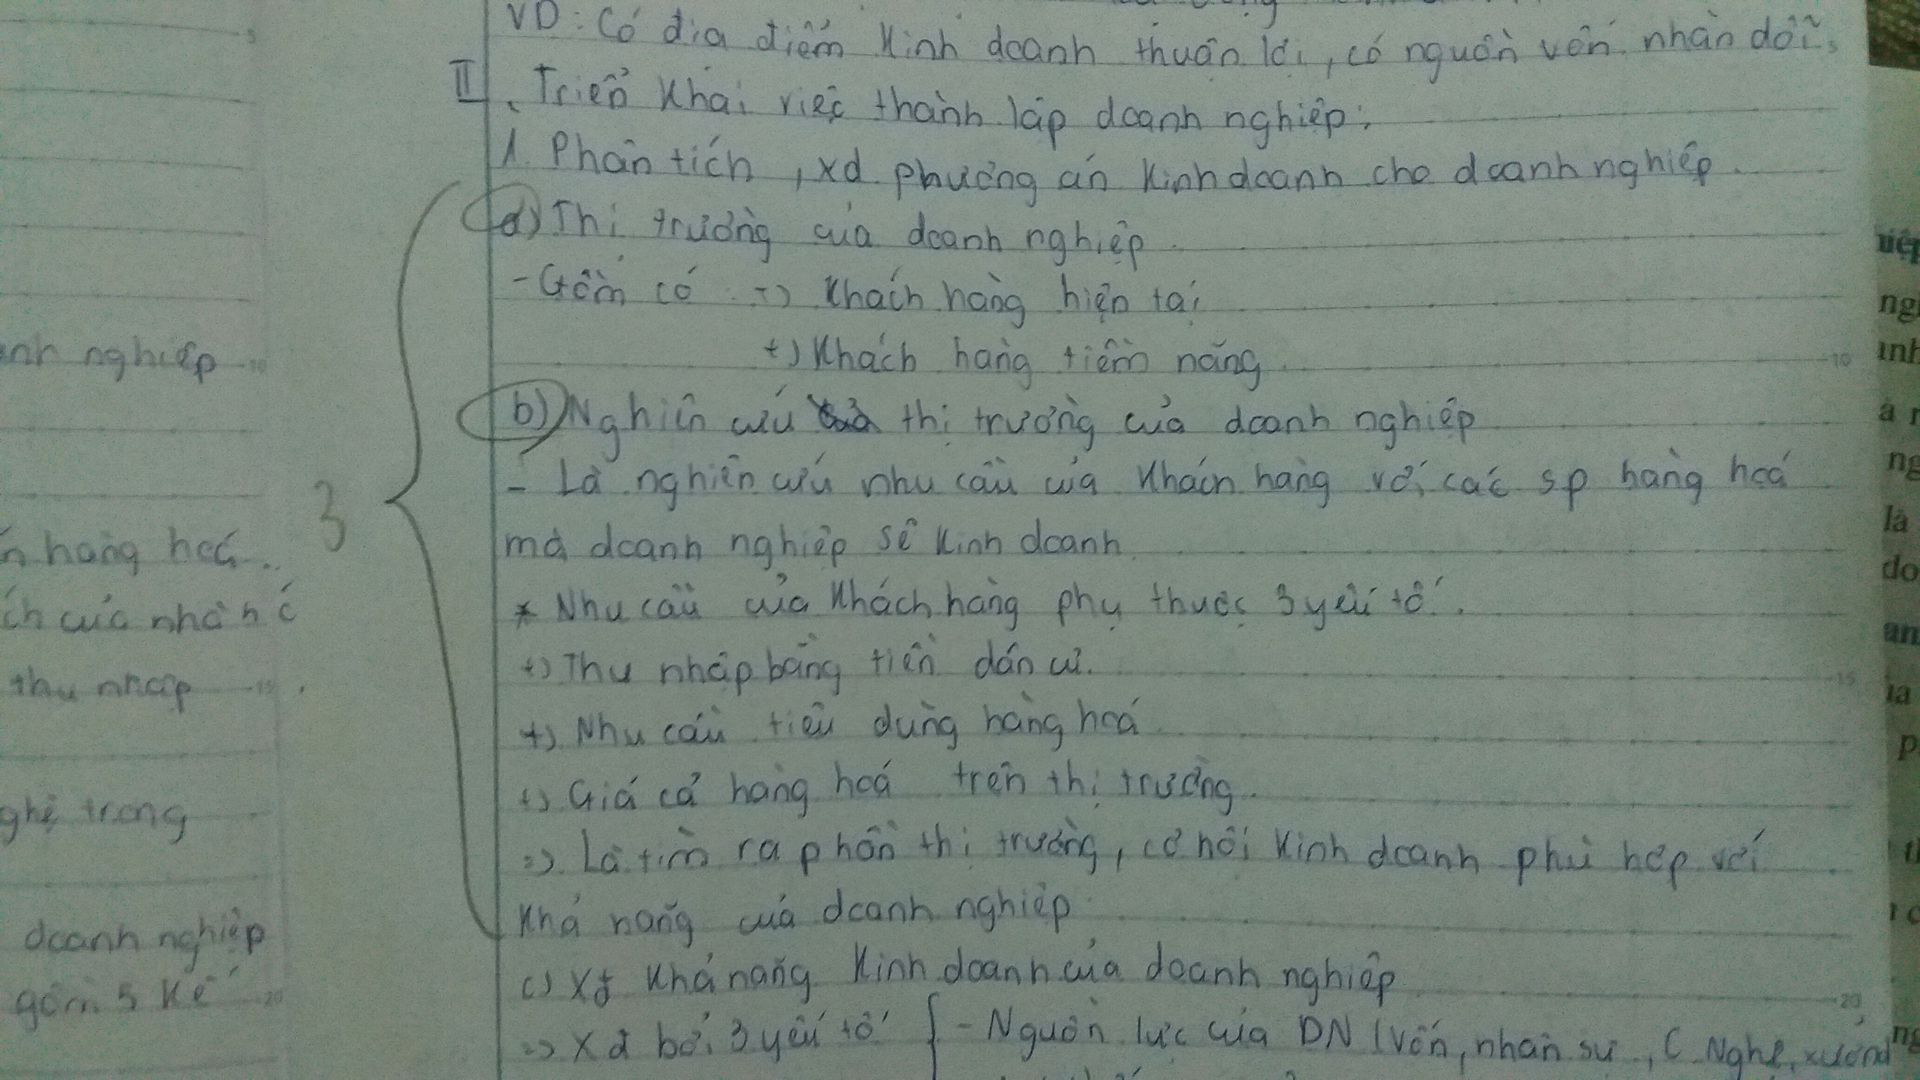 VD: Có địa điểm kinh doanh thuận lợi, có nguồn vốn nhàn dỗi.
II. Triển khai việc thành lập doanh nghiệp:
1. Phân tích, xd phương án kinh doanh cho doanh nghiệp.
a) Thị trường của doanh nghiệp
- Gồm có +) Khách hàng hiện tại
+) Khách hàng tiềm năng
b) Nghiên cứu thị trường của doanh nghiệp
- Là nghiên cứu nhu cầu của khách hàng với các sp hàng hoá
mà doanh nghiệp sẽ kinh doanh
* Nhu cầu của khách hàng phụ thuộc 3 yếu tố.
+) Thu nhập bằng tiền dân cư.
+) Nhu cầu tiêu dùng hàng hoá
+) Giá cả hàng hoá trên thị trường.
=> Là tìm ra phần thị trường, cơ hội kinh doanh phù hợp với
khả năng của doanh nghiệp
c) Xđ khả năng kinh doanh của doanh nghiệp
=> Xđ bởi 3 yếu tố { - Nguồn lực của DN (vốn, nhân sự, C. Nghệ, xưởng
3
nghiệp
hàng hoá..
thu nhập
trong
doanh nghiệp
gồm 5 kế